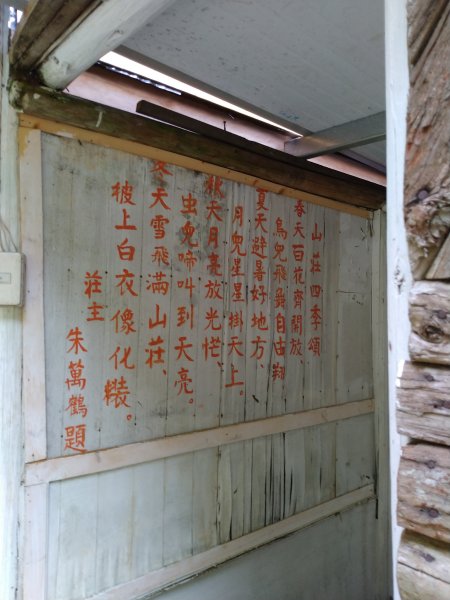 山莊四季頌
春天百花齊開放、
鳥兒飛舞自由翔
夏天避暑好地方、
月兒星星掛天上。
秋天月亮放光芒、
虫兒啼叫到天亮。
冬天雪飛滿山莊、
被上白衣像化粧。
莊主
朱萬鶴題